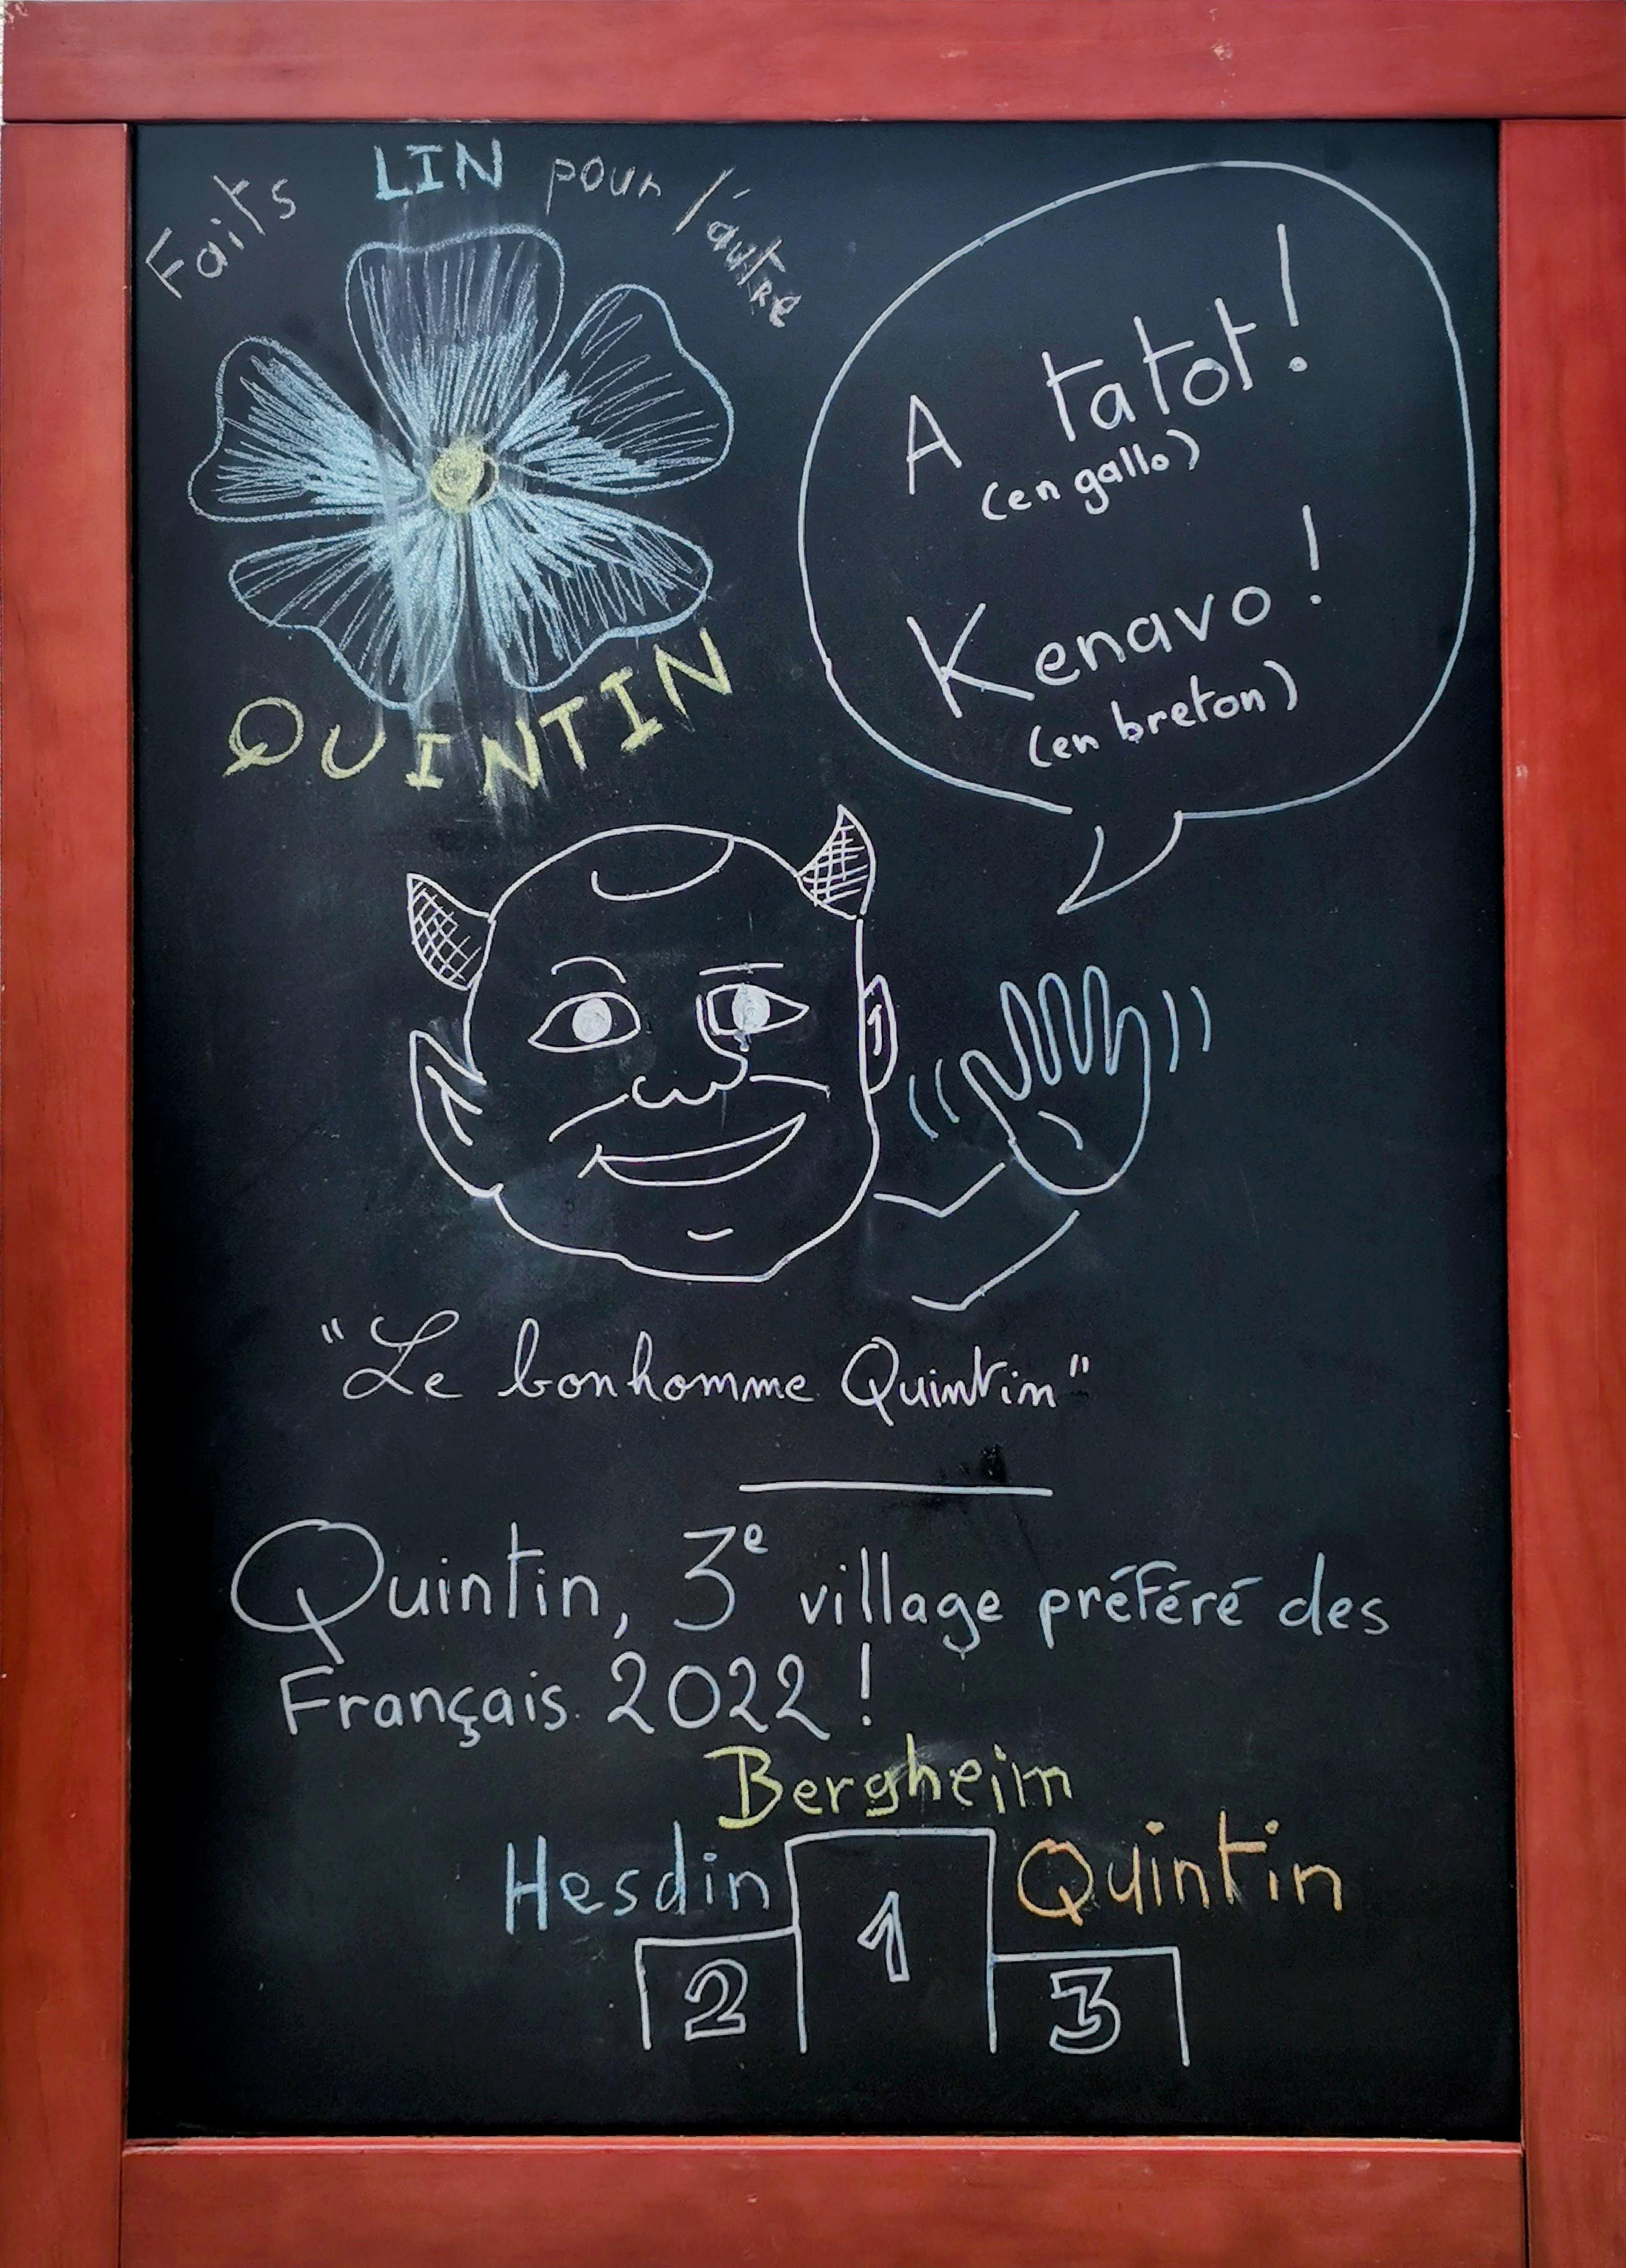 Faits LIN pour l'autre
QUINTIN
A tatot !
(en gallo)
Kenavo !
(en breton)
"Le bonhomme Quintin"
Quintin, 3e village préféré des
Français 2022 !
Bergheim
Hesdin
Quintin
1
2
3